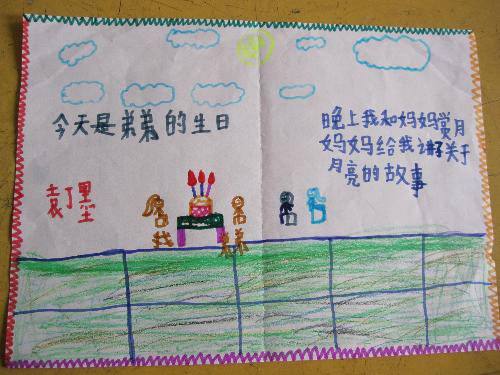 今天是弟弟的生日
晚上我和妈妈赏月
妈妈给我讲关于
月亮的故事
袁丁墨
我
弟弟